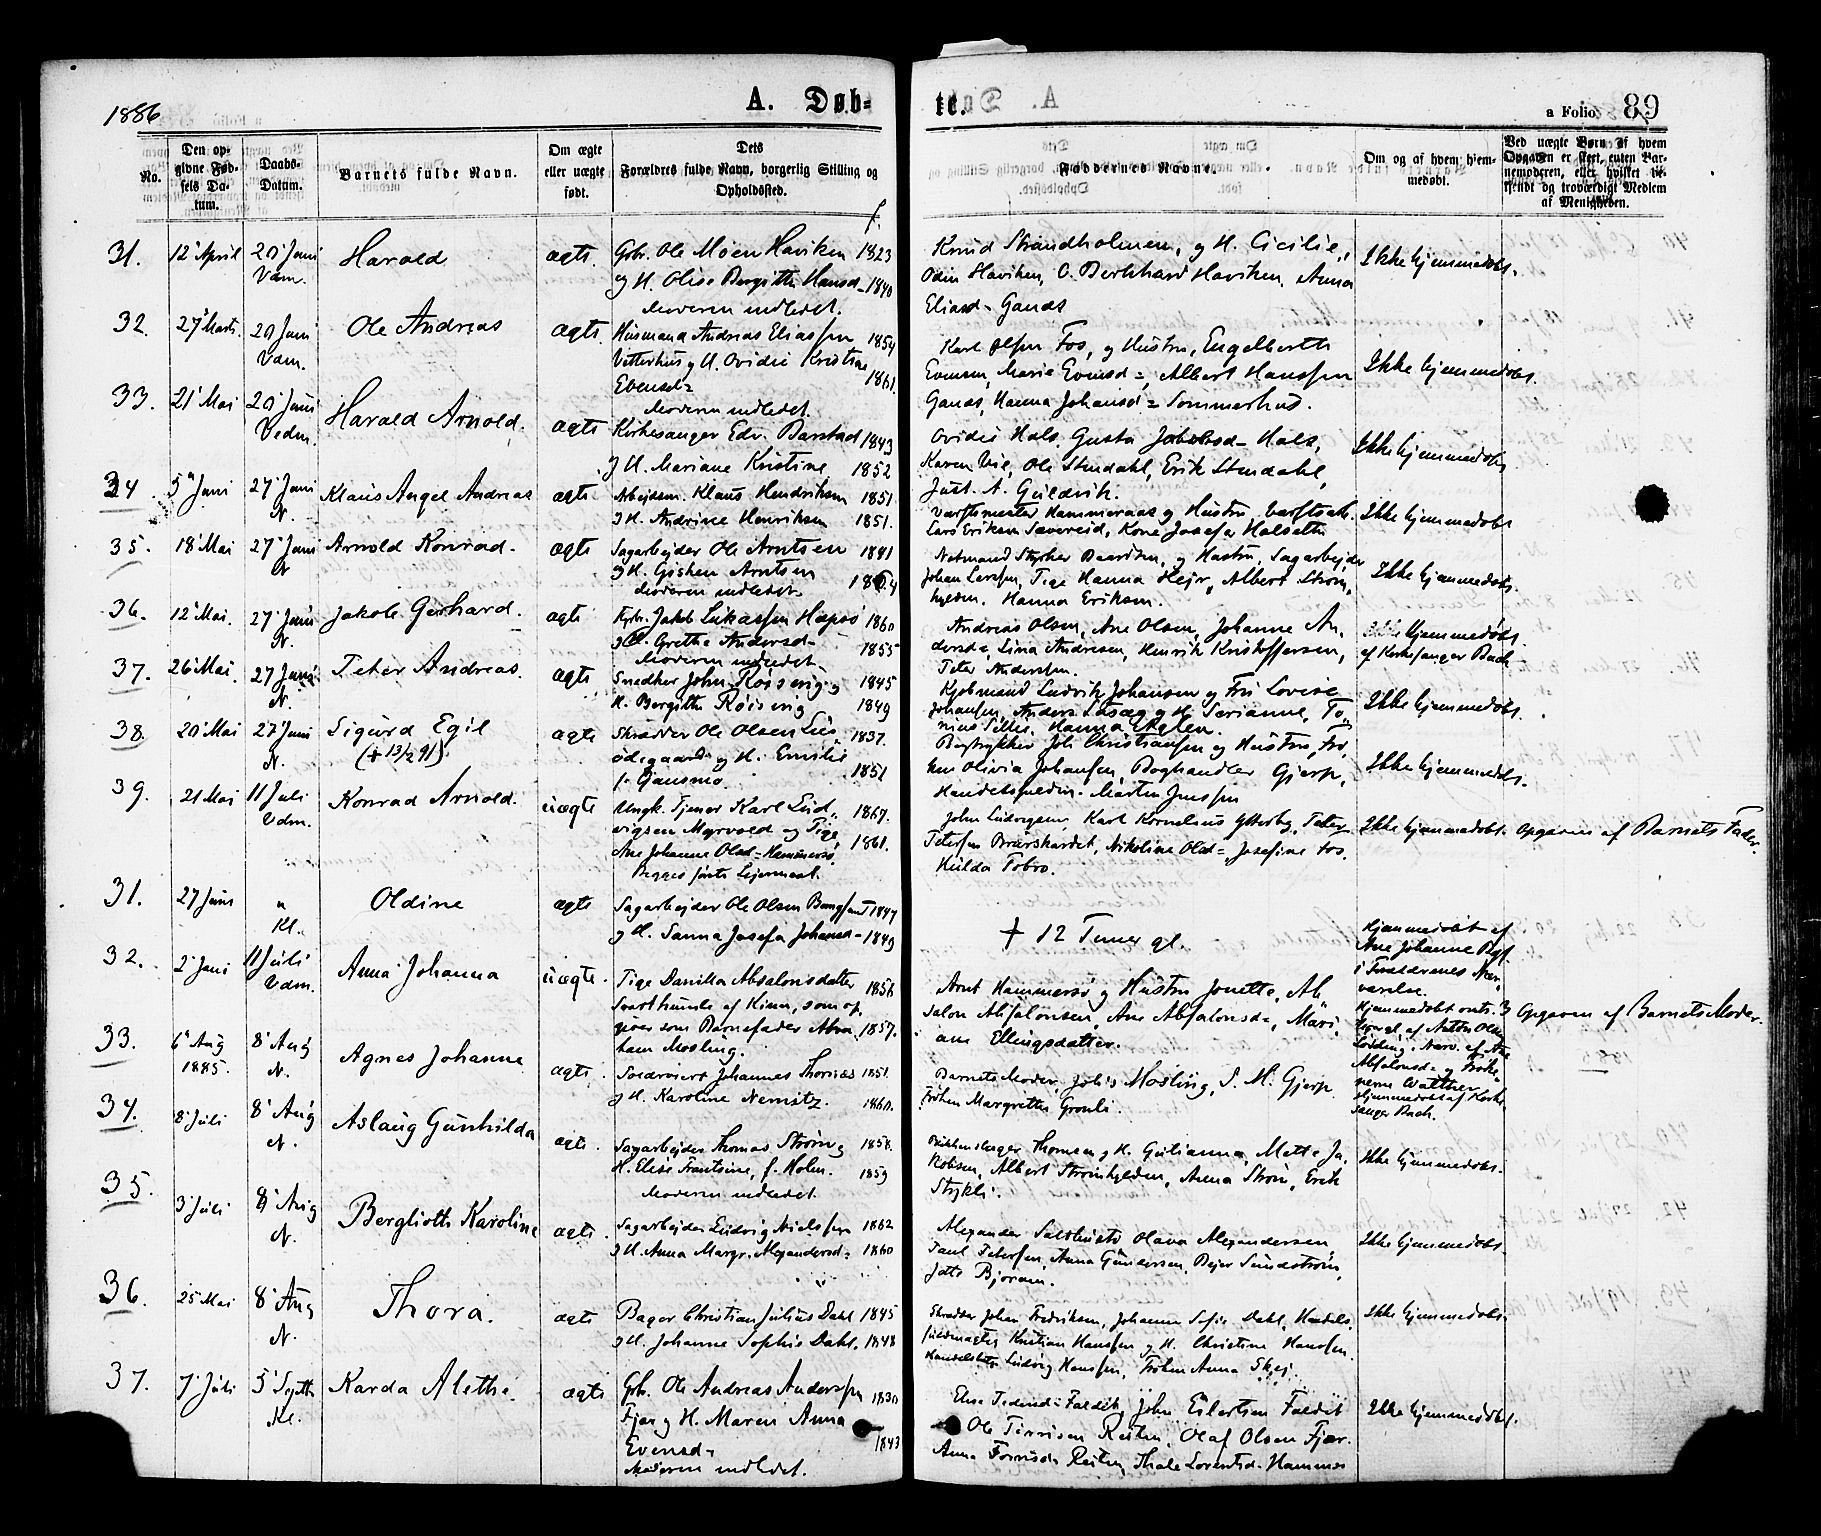 1886
A. Døb-
te.
a Folio 89
No.
Den op-
givne Fød-
sels Da-
tum.
Daabs-
Datum.
Barnets fulde Navn.
Om ægte
eller uægte
født.
Dets
Forældres fulde Navn, borgerlig Stilling og
Opholdssted.
Faddernes Navne.
Om og af hvem hjem-
medøbt.
Ved uægte Børn af hvem
Opgaven er skeet, enten Bar-
nemoderen, eller hvilket be-
kjendt og troværdigt Medlem
af Menigheden.
f.
31. 12' April 20' Juni Vdm. Harald ægte.
Gbr. Ole Møen Haviken 1823
og H. Olise Bergitte Hansd- 1840
Moderen indledet.
Knud Strandholmen, og H. Cicilie,
Odin Haviken, O. Bernhard Haviken, Anna
Eliasd- Ganæs
Ikke hjemmedøbt.
32. 27' Marts 20 Juni Vdm. Ole Andreas ægte
Husmand Andreas Eliassen 1854
Vitterhus og H. Ovidie Kristine
Evensd= 1861.
Moderen indledet.
Karl Olsen Fos, og Hustru, Engelberth
Evensen, Marie Evensd=, Albert Hanssen
Ganæs, Hanna Johansd= Sommerhus.
Ikke hjemmedøbt.
33. 21' Mai 20' Juni Vedm. Harald Arnold. ægte
Kirkesanger Edv. Barstad 1843
og H. Mariane Kristine 1852
Ovidie Hals, Gusta Jakobsd- Hals,
Karen Vie, Ole Stendahl, Erik Stendahl,
Just. A. Guldvik.
Ikke hjemmedøbt
34. 5' Juni 27' Juni N. Klaus Angel Andreas ægte
Arbejdsm. Klaus Hendriksen 1851
og H. Andrine Henriksen 1851.
Værftsmester Hammeraas og Hustru, Værftsarb.
Lars Eriksen Sævereid, Kone Josefa Halseth
Ikke hjemmedøbt
35. 18' Mai 27' Juni N Arnold Konrad. ægte
Sagarbejder Ole Arntsen 1841
og H. Gjsken Arntsen
Moderen indledet.
Johan Larssen, Pige Hanna Hejr, Albert Strøm,
Hanna Eriksen.
Ikke hjemmedøbt.
36. 12' Mai. 27' Juni N. Jakob Gerhard. ægte
Gbr. Jakob Lukassen Hopsø 1860
og H. Grethe Andersd- 1855
Moderen indledet.
Andreas Olsen, Ane Olsen, Johanne An-
dersd=, Lina Andresen, Henrik Kristoffersen,
Peter Anderssen.
Ikke hjemmedøbt
af Kirkesanger Bach
37. 26' Mai 27 Juni N. Peter Andreas. ægte
Snedker John Røisvig og 1845
H. Bergitte Røisvig 1849
Kjøbmand Ludvik Johansen og Fru Lovise
Johansen, Anders Lasæg og H. Serianne,
Hanna Aglen.
Ikke hjemmedøbt.
38. 20' Mai 27' Juni N. Sigurd Egil ægte
(+ 13/2 91)
Skrædder Ole Olsen Lus 1837.
ødegaard og H. Emilie
f. Gansmo. 1851
Bogtrykker Joh Christiansen og Hustru, Frø-
ken Olivia Johansen, Boghandler Gjerp,
Handelsfuldm. Martin Jenssen
Ikke hjemmedøbt.
39. 21 Mai 11 Juli Vdm. Konrad Arnold. uægte
Ungk. Tjener Karl Lud- 1867.
vigsen Myrvold og Pige
Ane Johanne Olsd= Hammersø 1861.
Begges første Lejermaal.
John Ludvigsen, Karl Kornelius Ytterby, Peter
Petersen Bruraskardet, Nikoline Olsd=, Josefine Fos.
Hulda Tobro.
Ikke hjemmedøbt. Opgaven af Barnets Fader.
31. 27 Juni " Kl. Oldine ægte
Sagarbejder Ole Olsen 1847
og H. Sanna Josefa Johansd- 1849
+ 12 Timer gl.
Hjemmedøbt af
Ane Johanne
i Forældrenes Nær-
værelse.
32. 2' Juni 11 Juli Vdm. Anna Johanna uægte.
Pige Danilla Absalonsdatter 1856
Svarthumle af Kinn, som op-
giver som Barnefader Abra 1857.
ham Mosling.
Arnt Hammersø og Hustru Jonette, Ab-
salon Absalonsen, Ane Absalonsd=, Mari-
ane Ellingsdatter.
Hjemmedøbt
Opgaven af Barnets Moder.
33. 6' Aug 1885. 8' Aug N. Agnes Johanne ægte.
Johannes Thomæs 1851.
og H. Karoline Nemitz. 1860.
Barnets Moder, Johs Mosling, S. M. Gjerp
Frøken Margrethe Gronli.
Hjemmedøbt af Kirke-
sanger Bach.
34. 8' Juli 8' Aug N. Aslaug Gunhilda ægte.
Sagarbejder Thomas Strøm og 1858.
H. Elise Frantsine, f. Holm. 1859
Moderen indledet.
Blikkenslager Thomsen og H. Gulianna, Mette Ja-
kobsen, Albert Strømhylden, Anna Strøm, Erik
Strykli.
Ikke hjemmedøbt.
35. 3' Juli 8' Aug N. Berglioth Karoline ægte.
Sagarbejder Ludvig Nielssen 1862
og H. Anna Margr. Alexandersd= 1860
Alexander Olava Alexandersen,
Paul Petersen, Anna Gundersen, Bejer Sundstrøm,
Ikke hjemmedøbt.
36. 25 Mai 8' Aug N. Thora. ægte
Bager Christian Julius Dahl 1845
og H. Johanne Sophie Dahl. 1848
Skrædder Johan Fredriksen, Johanna Sofie Dahl, Handels-
fuldmægtig Kristian Hanssen og H. Christine Hanssen.
Ludvig Hanssen, Frøken Anna Skej.
Ikke hjemmedøbt.
37. 7' Juli 5' Septb Kl. Karda Alethe. ægte
Gbr. Ole Andreas Anderssen 1830
Fjær og H. Maren Anna
Evensd= 1843
Moderen indledet.
John Eilertsen Faldet
Ole Tørrisen Reiten, Olaf Olsen Fjær.
Anna Reiten, Thale Lorentsd- Hammer
Ikke hjemmedøbt.